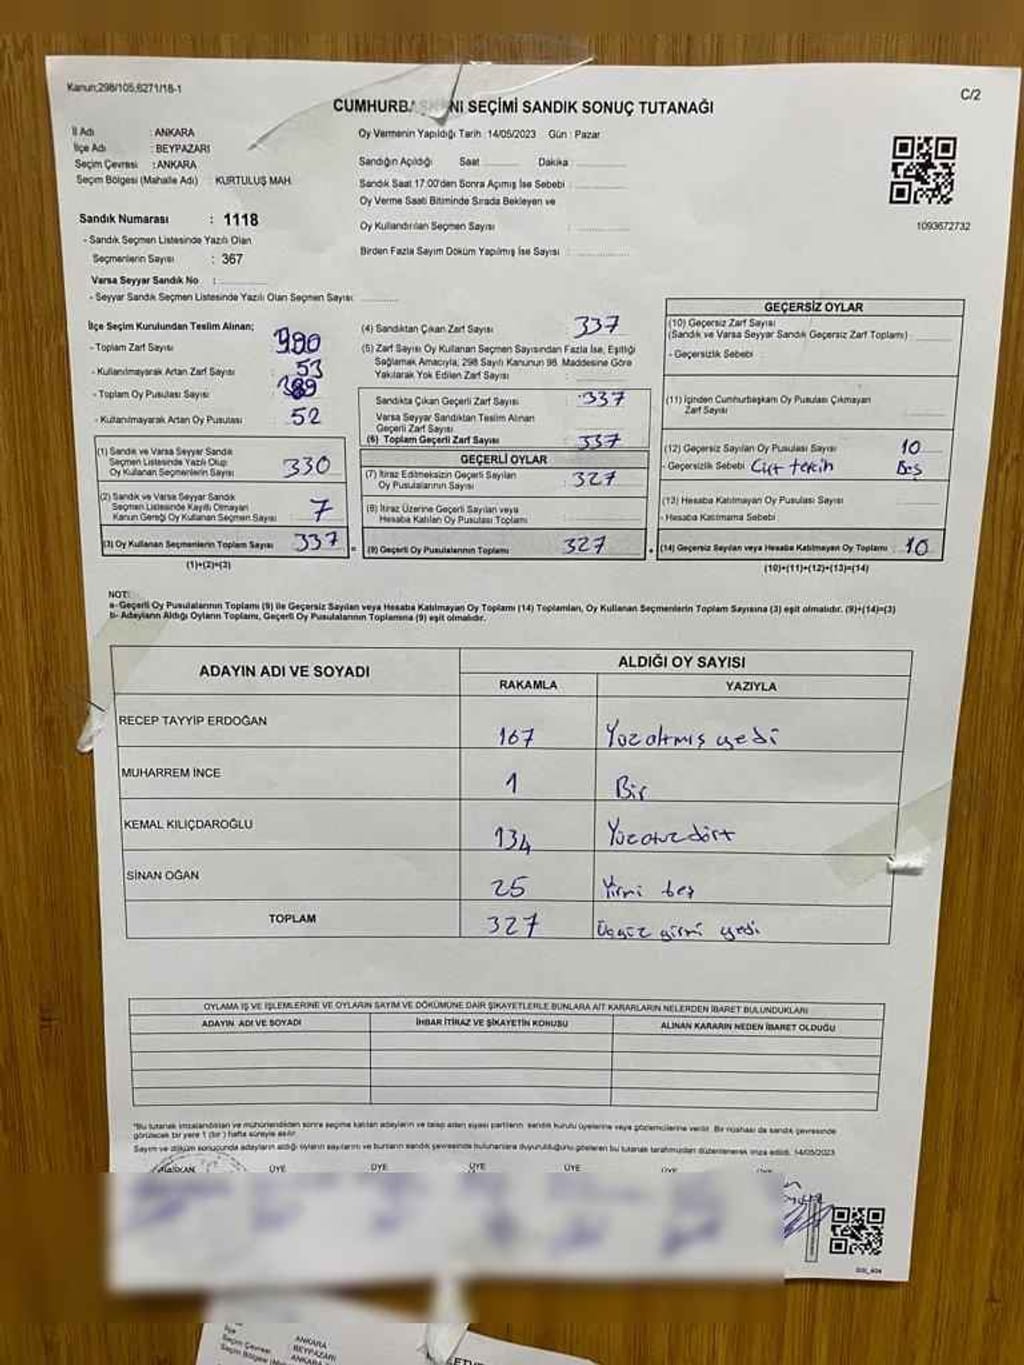 Kanun;298/105;6271/18-1
C/2
CUMHURBAŞKANI SEÇİMİ SANDIK SONUÇ TUTANAĞI
İl Adı : ANKARA
İlçe Adı : BEYPAZARI
Seçim Çevresi : ANKARA
Seçim Bölgesi (Mahalle Adı) : KURTULUŞ MAH.
Sandık Numarası : 1118
- Sandık Seçmen Listesinde Yazılı Olan
Seçmenlerin Sayısı : 367
Varsa Seyyar Sandık No :
- Seyyar Sandık Seçmen Listesinde Yazılı Olan Seçmen Sayısı:
Oy Vermenin Yapıldığı Tarih :14/05/2023 Gün : Pazar
Sandığın Açıldığı Saat Dakika :
Sandık Saat 17.00'den Sonra Açımış İse Sebebi :
Oy Verme Saati Bitiminde Sırada Bekleyen ve
Oy Kullandırılan Seçmen Sayısı :
Birden Fazla Sayım Döküm Yapılmış İse Sayısı :
1093672732
İlçe Seçim Kurulundan Teslim Alınan;
- Toplam Zarf Sayısı :
- Kullanılmayarak Artan Zarf Sayısı : 53
- Toplam Oy Pusulası Sayısı : 389
- Kullanılmayarak Artan Oy Pusulası : 52
(1) Sandık ve Varsa Seyyar Sandık
Seçmen Listesinde Yazılı Olup
Oy Kullanan Seçmenlerin Sayısı : 330
(2) Sandık ve Varsa Seyyar Sandık
Seçmen Listesinde Kayıtlı Olmayan
Kanun Gereği Oy Kullanan Seçmen Sayısı : 7
(3) Oy Kullanan Seçmenlerin Toplam Sayısı : 337
(1)+(2)=(3)
(4) Sandıktan Çıkan Zarf Sayısı : 337
(5) Zarf Sayısı Oy Kullanan Seçmen Sayısından Fazla İse, Eşitliği
Sağlamak Amacıyla; 298 Sayılı Kanunun 98. Maddesine Göre
Yakılarak Yok Edilen Zarf Sayısı :
Sandıkta Çıkan Geçerli Zarf Sayısı : 337
Varsa Seyyar Sandıktan Teslim Alınan
Geçerli Zarf Sayısı :
(6) Toplam Geçerli Zarf Sayısı : 337
GEÇERLİ OYLAR
(7) İtiraz Edilmeksizin Geçerli Sayılan
Oy Pusulalarının Sayısı : 327
(8) İtiraz Üzerine Geçerli Sayılan veya
Hesaba Katılan Oy Pusulası Toplamı :
= (9) Geçerli Oy Pusulalarının Toplamı : 327 +
GEÇERSİZ OYLAR
(10) Geçersiz Zarf Sayısı
(Sandık ve Varsa Seyyar Sandık Geçersiz Zarf Toplamı) :
- Geçersizlik Sebebi
(11) İçinden Cumhurbaşkanı Oy Pusulası Çıkmayan
Zarf Sayısı :
(12) Geçersiz Sayılan Oy Pusulası Sayısı : 10
- Geçersizlik Sebebi Çift tercih Boş
(13) Hesaba Katılmayan Oy Pusulası Sayısı :
- Hesaba Katılmama Sebebi
(14) Geçersiz Sayılan veya Hesaba Katılmayan Oy Toplamı : 10
(10)+(11)+(12)+(13)=(14)
NOT:
a- Geçerli Oy Pusulalarının Toplamı (9) ile Geçersiz Sayılan veya Hesaba Katılmayan Oy Toplamı (14) Toplamları, Oy Kullanan Seçmenlerin Toplam Sayısına (3) eşit olmalıdır. (9)+(14)=(3)
b- Adayların Aldığı Oyların Toplamı, Geçerli Oy Pusulalarının Toplamına (9) eşit olmalıdır.
ADAYIN ADI VE SOYADI ALDIĞI OY SAYISI
RAKAMLA YAZIYLA
RECEP TAYYİP ERDOĞAN 167 Yüzaltmış yedi
MUHARREM İNCE 1 Bir
KEMAL KILIÇDAROĞLU 134 Yüzotuzdört
SİNAN OĞAN 25 Yirmi beş
TOPLAM 327 Üçyüz yirmi yedi
OYLAMA İŞ VE İŞLEMLERİNE VE OYLARIN SAYIM VE DÖKÜMÜNE DAİR ŞİKAYETLERLE BUNLARA AİT KARARLARIN NELERDEN İBARET BULUNDUKLARI
ADAYIN ADI VE SOYADI İHBAR İTİRAZ VE ŞİKAYETİN KONUSU ALINAN KARARIN NEDEN İBARET OLDUĞU
*Bu tutanak imzalandıktan ve mühürlendikten sonra seçime katılan adayların ve talep eden siyasi partilerin sandık kurulu üyelerine veya gözlemcilerine verilir. Bir nüshası da sandık çevresinde
görülecek bir yere 1 (bir) hafta süreyle asılır.
Sayım ve döküm sonucunda adayların aldığı oyların sayılarını ve bunların sandık çevresinde bulunanlara duyurulduğunu gösteren bu tutanak tarafımızdan düzenlenerek imza edildi. 14/05/2023
BAŞKAN ÜYE ÜYE ÜYE ÜYE ÜYE
İlçe
ANKARA
Seçim Çevresi BEYPAZARI
Seçim Bölgesi ANKARA